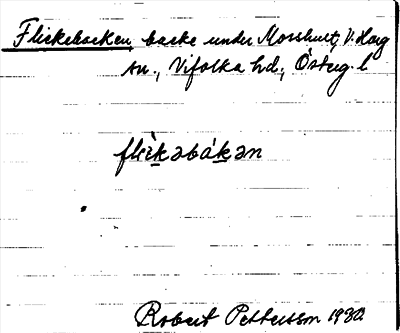 Flickebacken, backe under Mosshult, V. Harg
sn., Vifolka hd., Österg. l
flìckəbákən
Robert Pettersson 1930